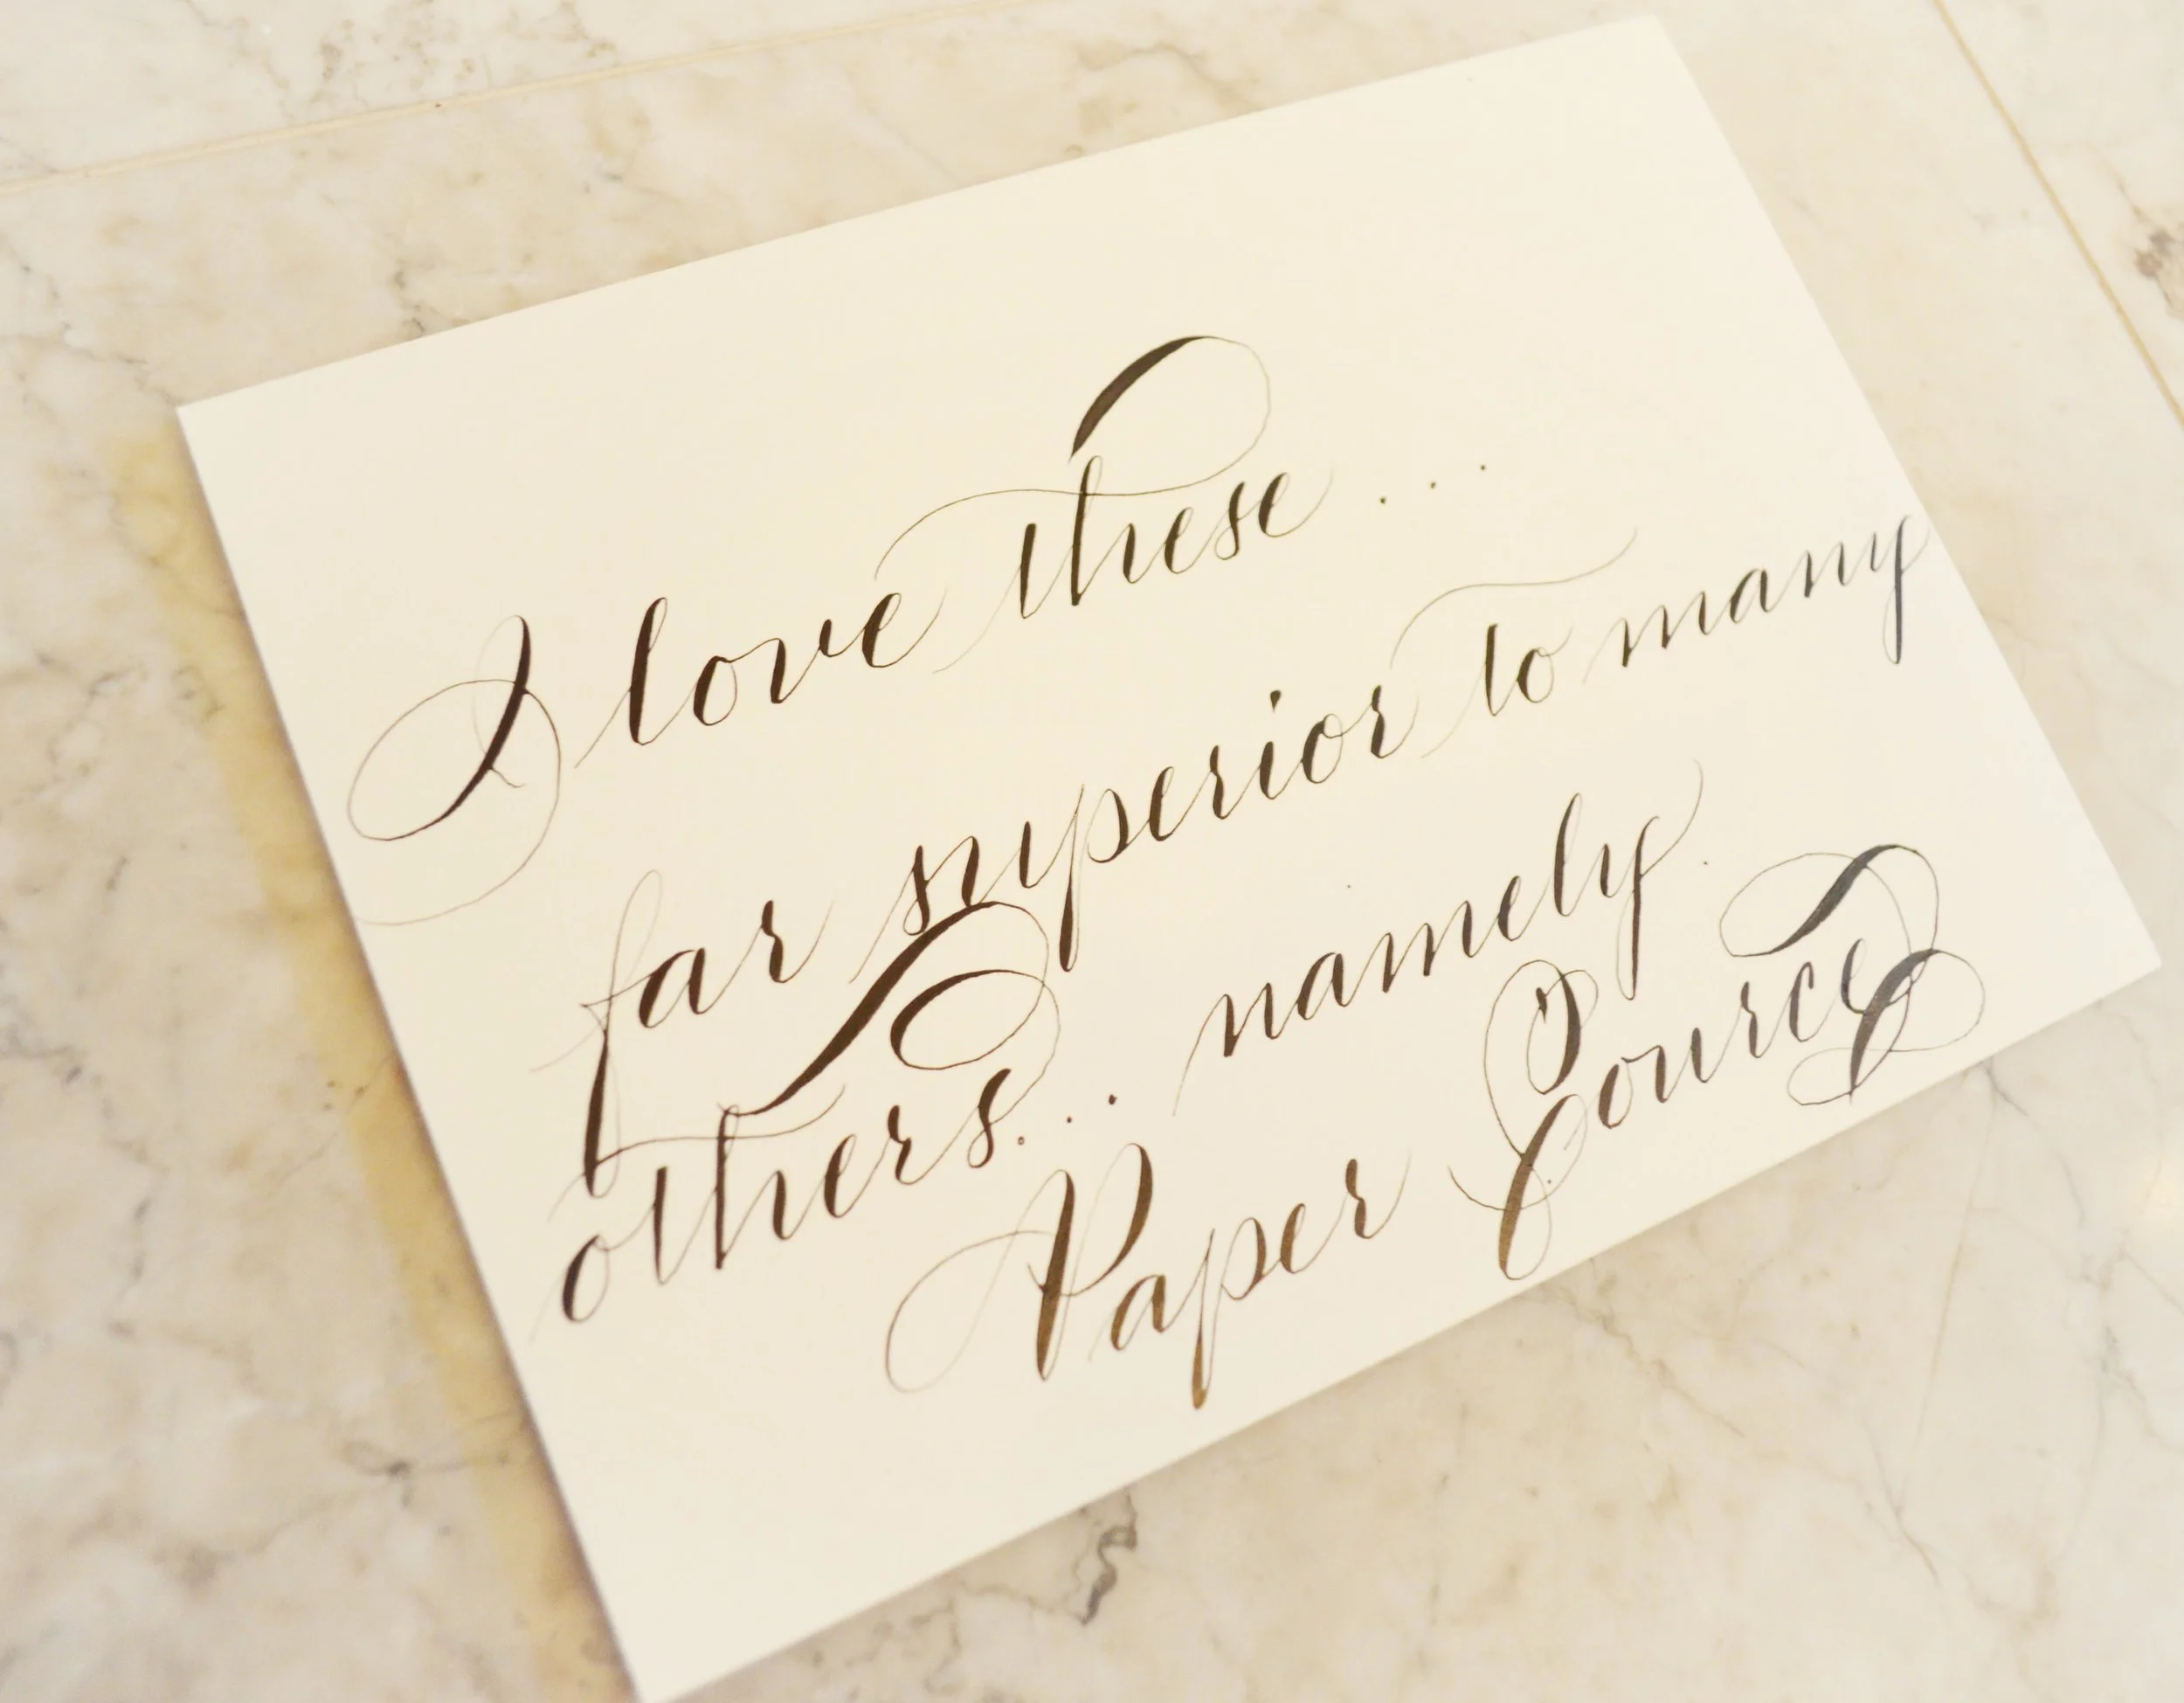 I love these...
far superior to many
others... namely.
Paper Source